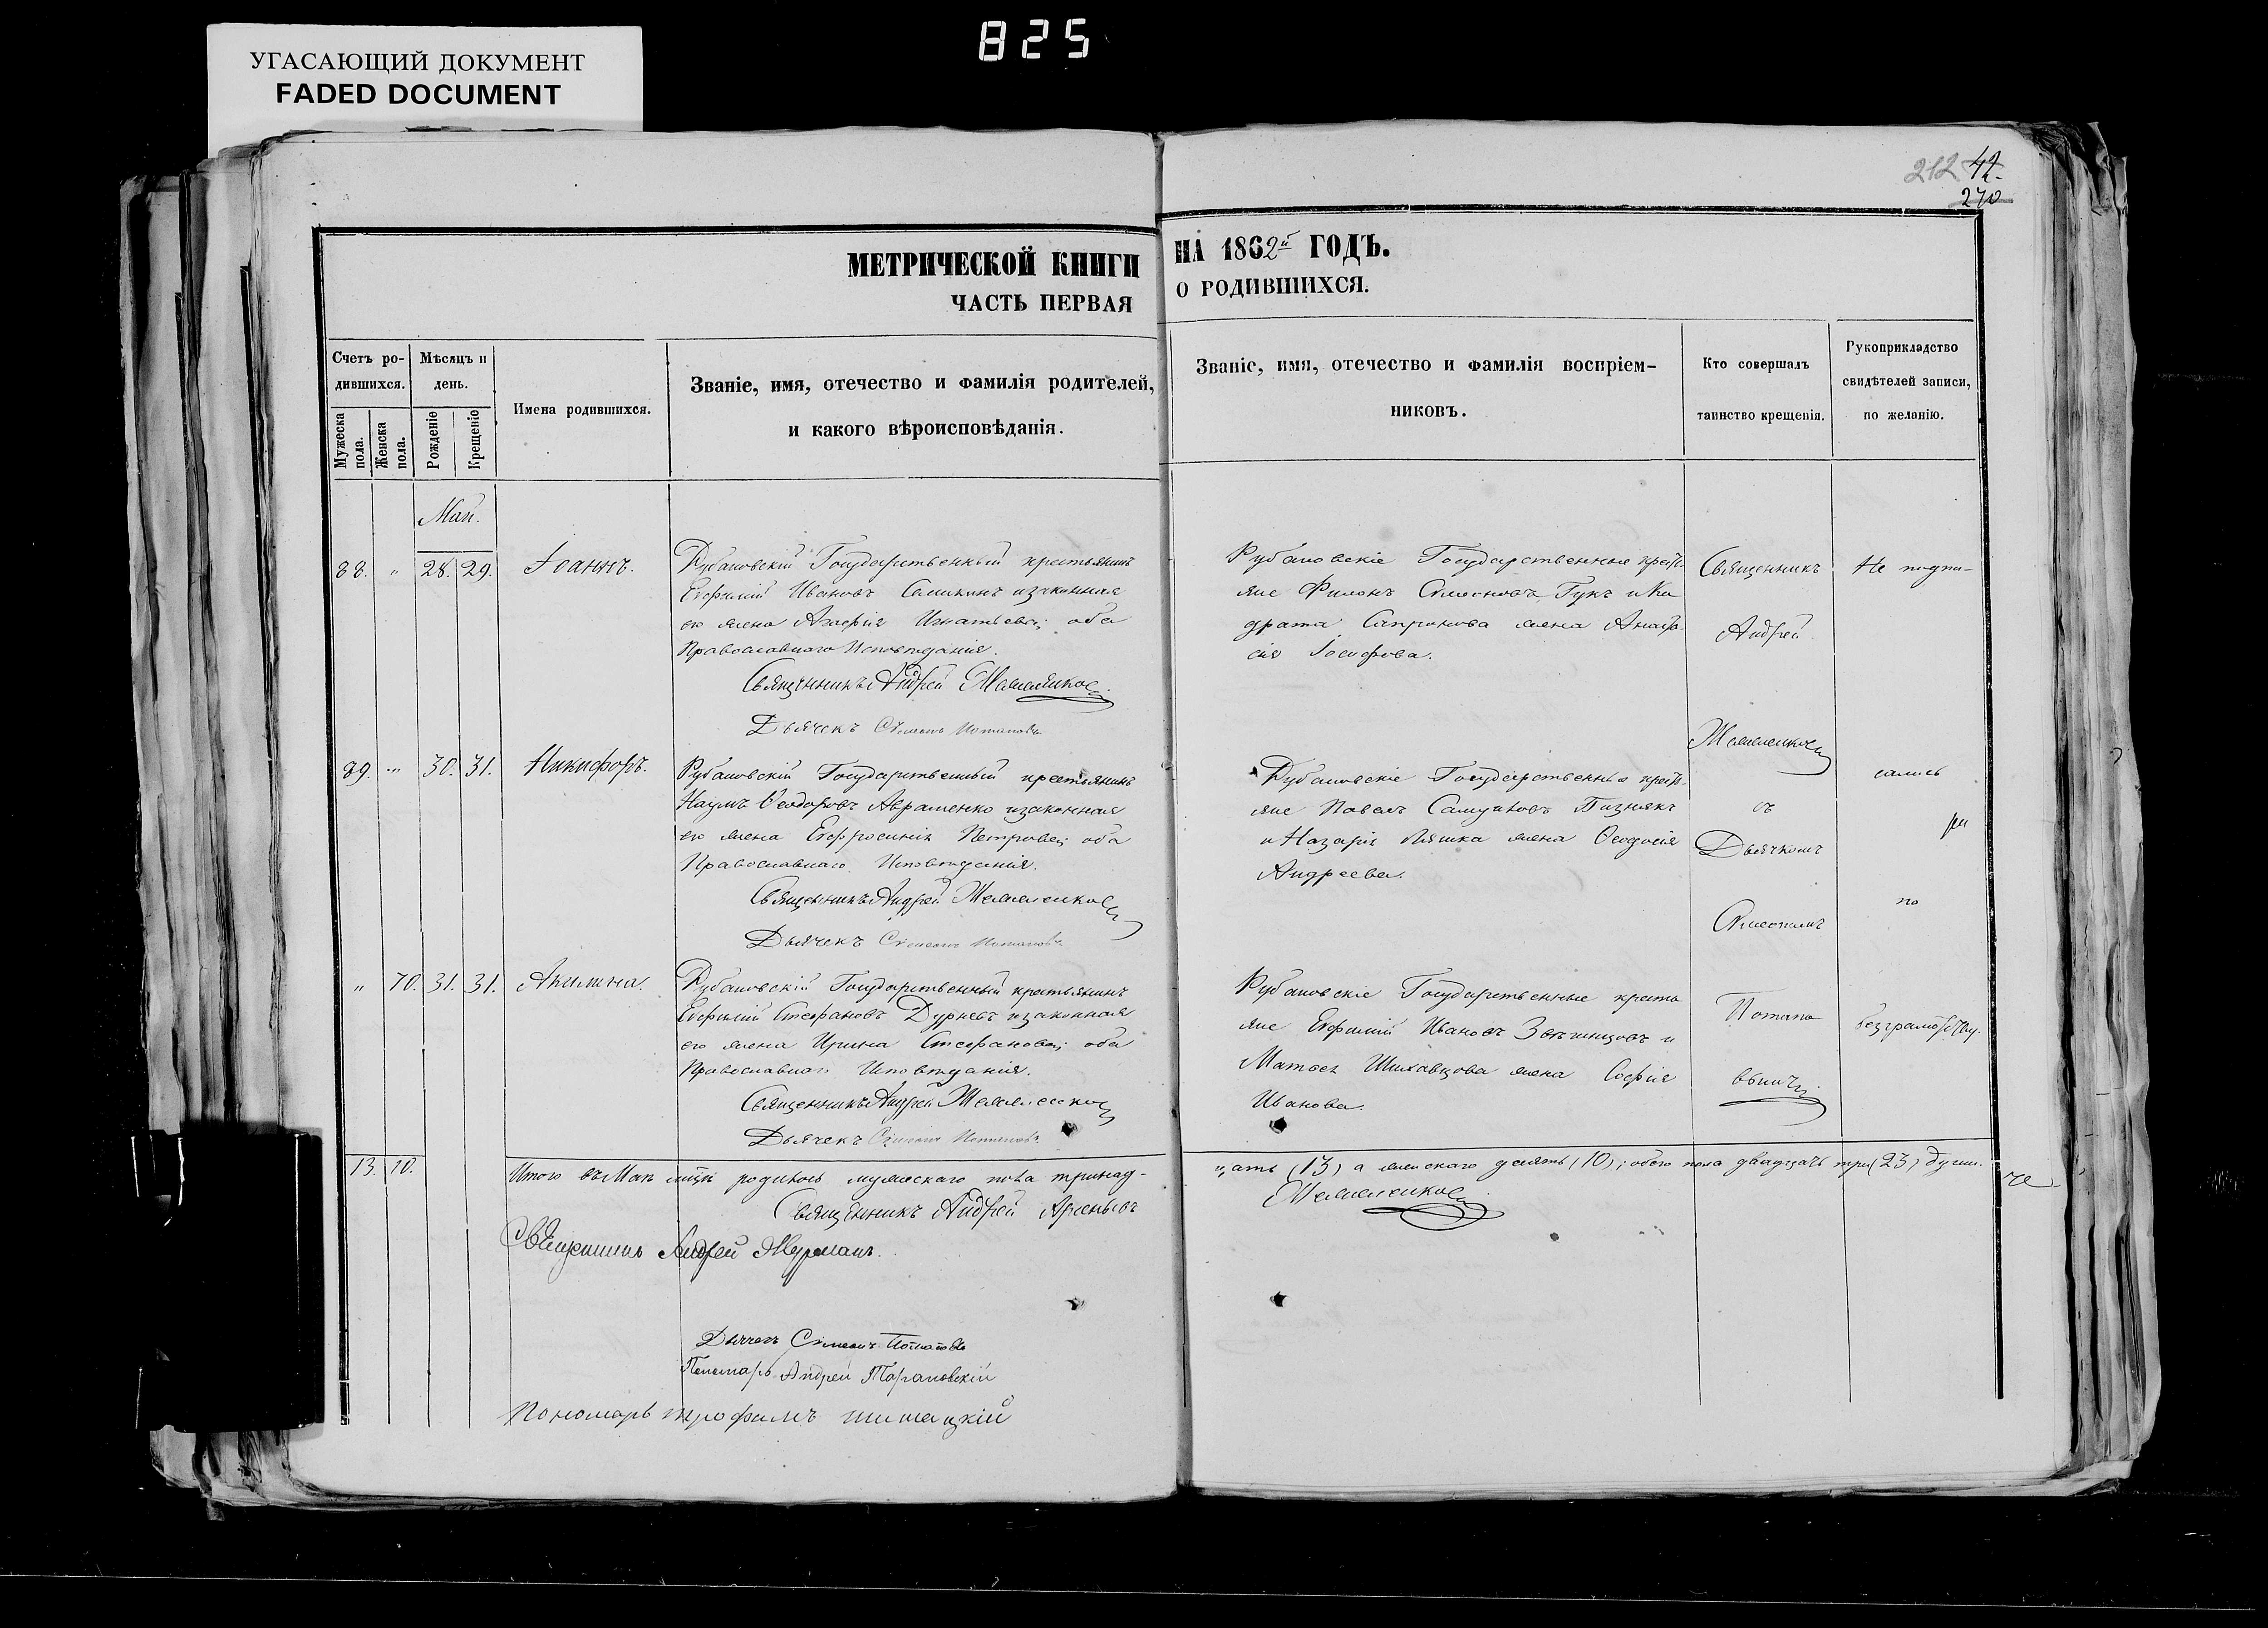 825
УГАСАЮЩИЙ ДОКУМЕНТ
FADED DOCUMENT
212 42.
270
МЕТРИЧЕСКОЙ КНИГИ НА 1862й ГОДЪ.
ЧАСТЬ ПЕРВАЯ О РОДИВШИХСЯ.
Счетъ ро-
дившихся.
Мужеска пола.
Женска пола.
Мѣсяцъ и
день.
Рожденіе
Крещеніе
Имена родившихся.
Званіе, имя, отечество и фамилія родителей,
и какого вѣроисповѣданія.
Званіе, имя, отечество и фамилія воспріем-
никовъ.
Кто совершалъ
таинство крещенія.
Рукоприкладство
свидѣтелей записи,
по желанію.
Май.
88. " 28. 29. Іоаннъ.
Рубановскій Государственный крестьянинъ
Евфимій Ивановъ изаконная
его жена Игнатьева; оба
Православнаго Исповѣданія.
Священникъ Андрей
Дьячекъ Сѵмеонъ Потаповъ
Рубановскіе Государственные крестья-
яне Филонъ Сѵмеоновъ Гукъ и Кон
драта Сапронова жена Анаста-
сія Іосифова.
89. " 30. 31. Никифоръ.
Рубановскій Государственный крестьянинъ
Наумъ Ѳеодоровъ Авраменко изаконная
его жена Евфросинія Петрова; оба
Православнаго Исповѣданія.
Священникъ Андрей
Дьячекъ Сѵмеонъ Потаповъ
Рубановскіе Государственные крестья-
яне Павелъ Самуиловъ
и Назарія Ляшка жена Ѳеодосія
Андреева.
" 70. 31. 31. Акилина.
Рубановскій Государственный крестьянинъ
Евфимій Стефановъ Дурневъ изаконная
его жена Ирина Стефанова; оба
Православнаго Исповѣданія.
Священникъ Андрей
Дьячекъ Сѵмеонъ Потаповъ
Рубановскіе Государственные крестья
яне Евфимій Ивановъ и
Матѳея жена Софія
Иванова.
Священникъ
Андрей
съ
Дьячкомъ
Сѵмеономъ
Потапо
вымъ
Не подпи-
сались
по
безграмотству.
13. 10. Итого въ Маѣ мѣсяцѣ родилось мужескаго пола тринад-
цать (13) а женскаго десять (10); обоего пола двадцать три (23) души.
Священникъ Андрей Арсеньевъ
Священникъ Андрей Журманъ.
Дьячекъ Сѵмеонъ Потаповъ
Пономарь Андрей Тарановскій
Пономарь трофимъ шишацкій